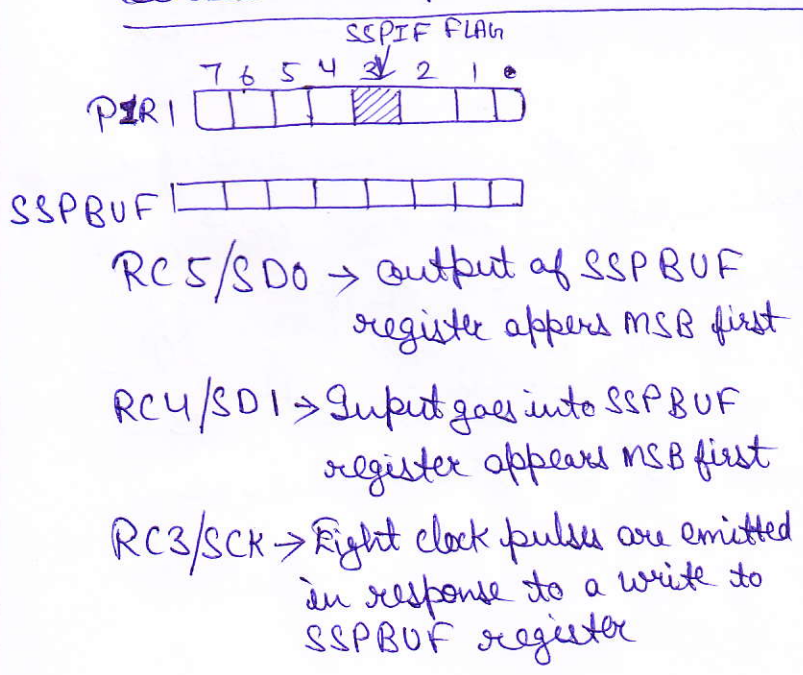 SSPIF FLAG
7 6 5 4 3 2 1 0
PIR1
SSPBUF
RC5/SDO → output of SSPBUF
register appers MSB first
RC4/SDI → Input goes into SSPBUF
register appears MSB first
RC3/SCK → Eight clock pulses are emitted
in response to a write to
SSPBUF register